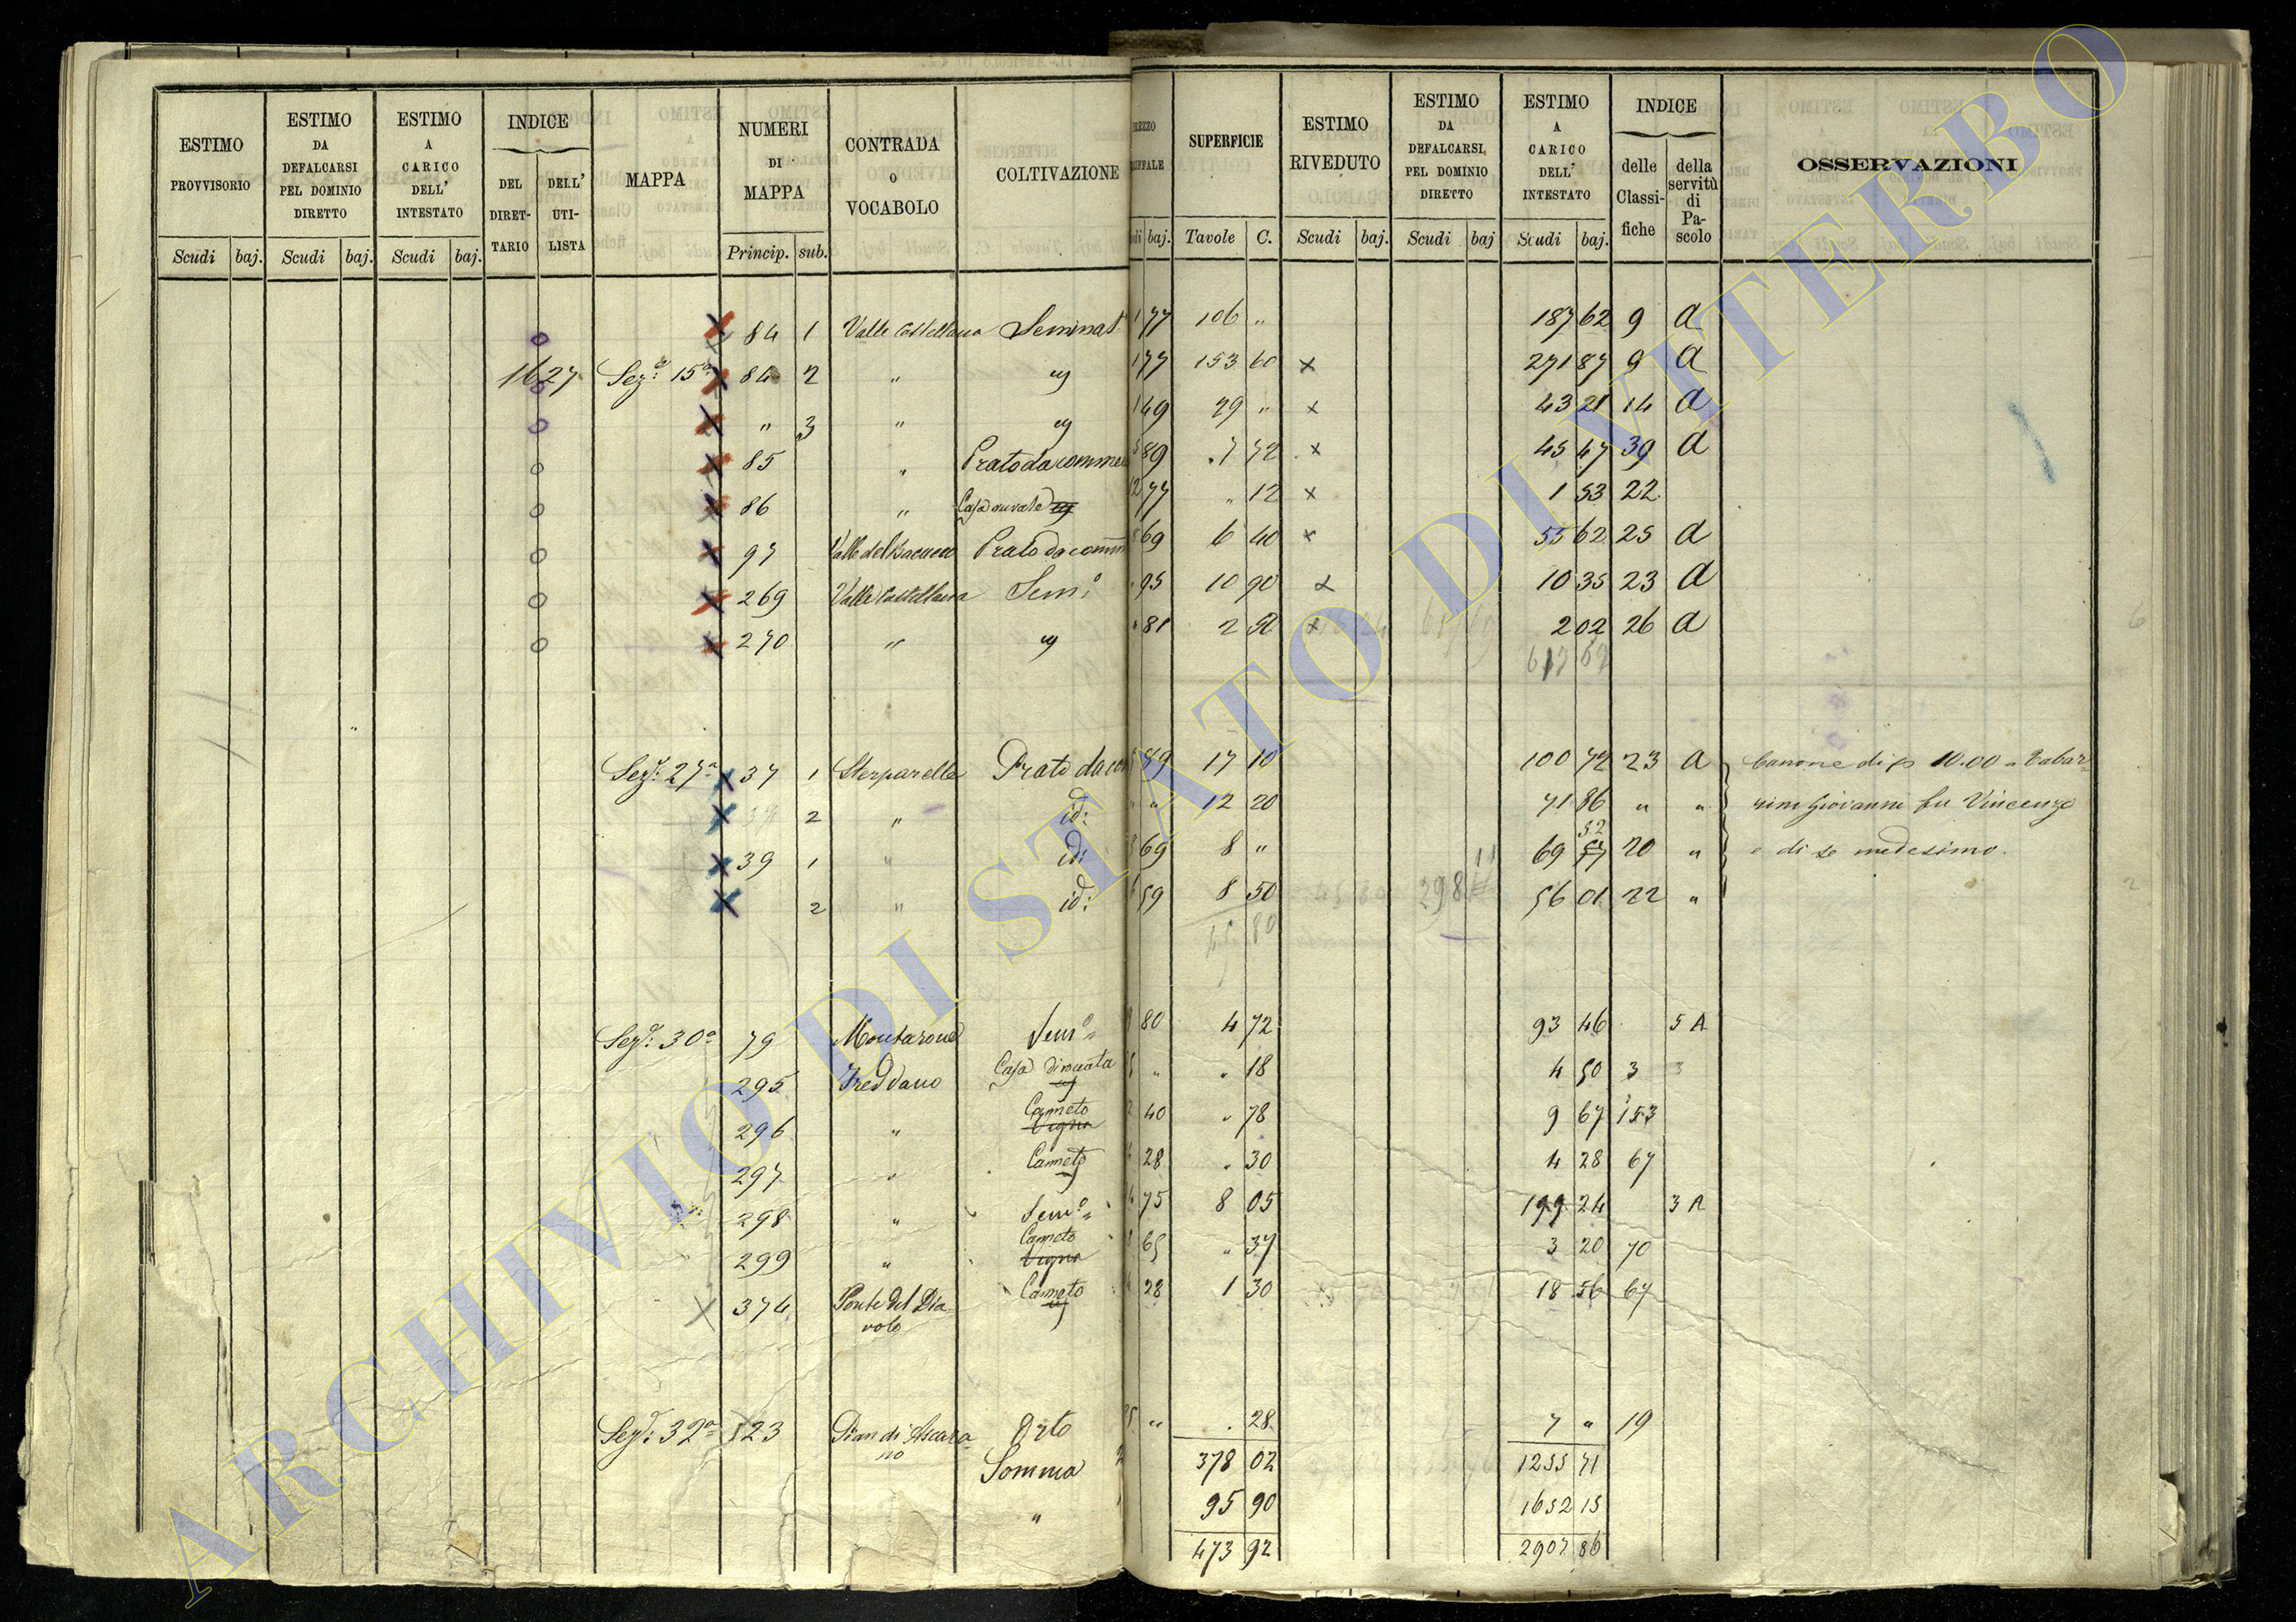 ESTIMO PROVVISORIO Scudi baj.
ESTIMO DA DEFALCARSI PEL DOMINIO DIRETTO Scudi baj.
ESTIMO A CARICO DELL' INTESTATO Scudi baj.
INDICE DEL DIRETTARIO DELL' UTILISTA
MAPPA
NUMERI DI MAPPA Princip. sub.
CONTRADA O VOCABOLO
COLTIVAZIONE
baj.
SUPERFICIE Tavole C.
ESTIMO RIVEDUTO Scudi baj.
ESTIMO DA DEFALCARSI PEL DOMINIO DIRETTO Scudi baj
ESTIMO A CARICO DELL' INTESTATO Scudi baj.
INDICE delle Classifiche della servitù di Pascolo
OSSERVAZIONI
84 1 Valle Castellana Seminat 77 106 " 187 62 9 a
1627 Sez.e 15a 84 2 " 77 153 60 x 271 87 9 a
" 3 " 49 29 " x 43 21 14 a
85 " Prato da comme 89 7 72 x 45 47 39 a
86 " 77 " 12 x 1 53 22
97 Prato da comm 69 6 40 x 55 62 25 a
269 Valle Castellana Sem.o 95 10 90 x 10 35 23 a
270 " 81 2 50 x 2 02 26 a
617 69
Sez.e 27a 37 1 Sterparella Prato da com 89 17 10 100 72 23 a Canone di 10.00 a Tabar
37 2 " id: " 12 20 71 86 " " rini Giovanni fu Vincenzo
39 1 " id: 69 8 " 69 52 20 " e di se medesimo.
2 " id: 59 8 50 298 11 56 01 22 "
45 80
Sez.e 30a 79 Montarone Sem.o 80 4 72 93 46 5 A
295 Freddano Casa diruata " " 18 4 50 3 3
296 " Canneto Vigna 40 " 78 9 67 153
297 " Canneto 28 " 30 4 28 67
298 " Sem.o 75 8 05 199 24 3 A
299 " Canneto Vigna 65 " 37 3 20 70
374 Ponte del Diavolo Canneto 28 1 30 18 56 67
Sez.e 32a 123 Pian di Ascarano Orto " . 28 7 " 19
Somma 378 02 1255 71
" 95 90 1652 15
473 92 2907 86
ARCHIVIO DI STATO DI VITERBO